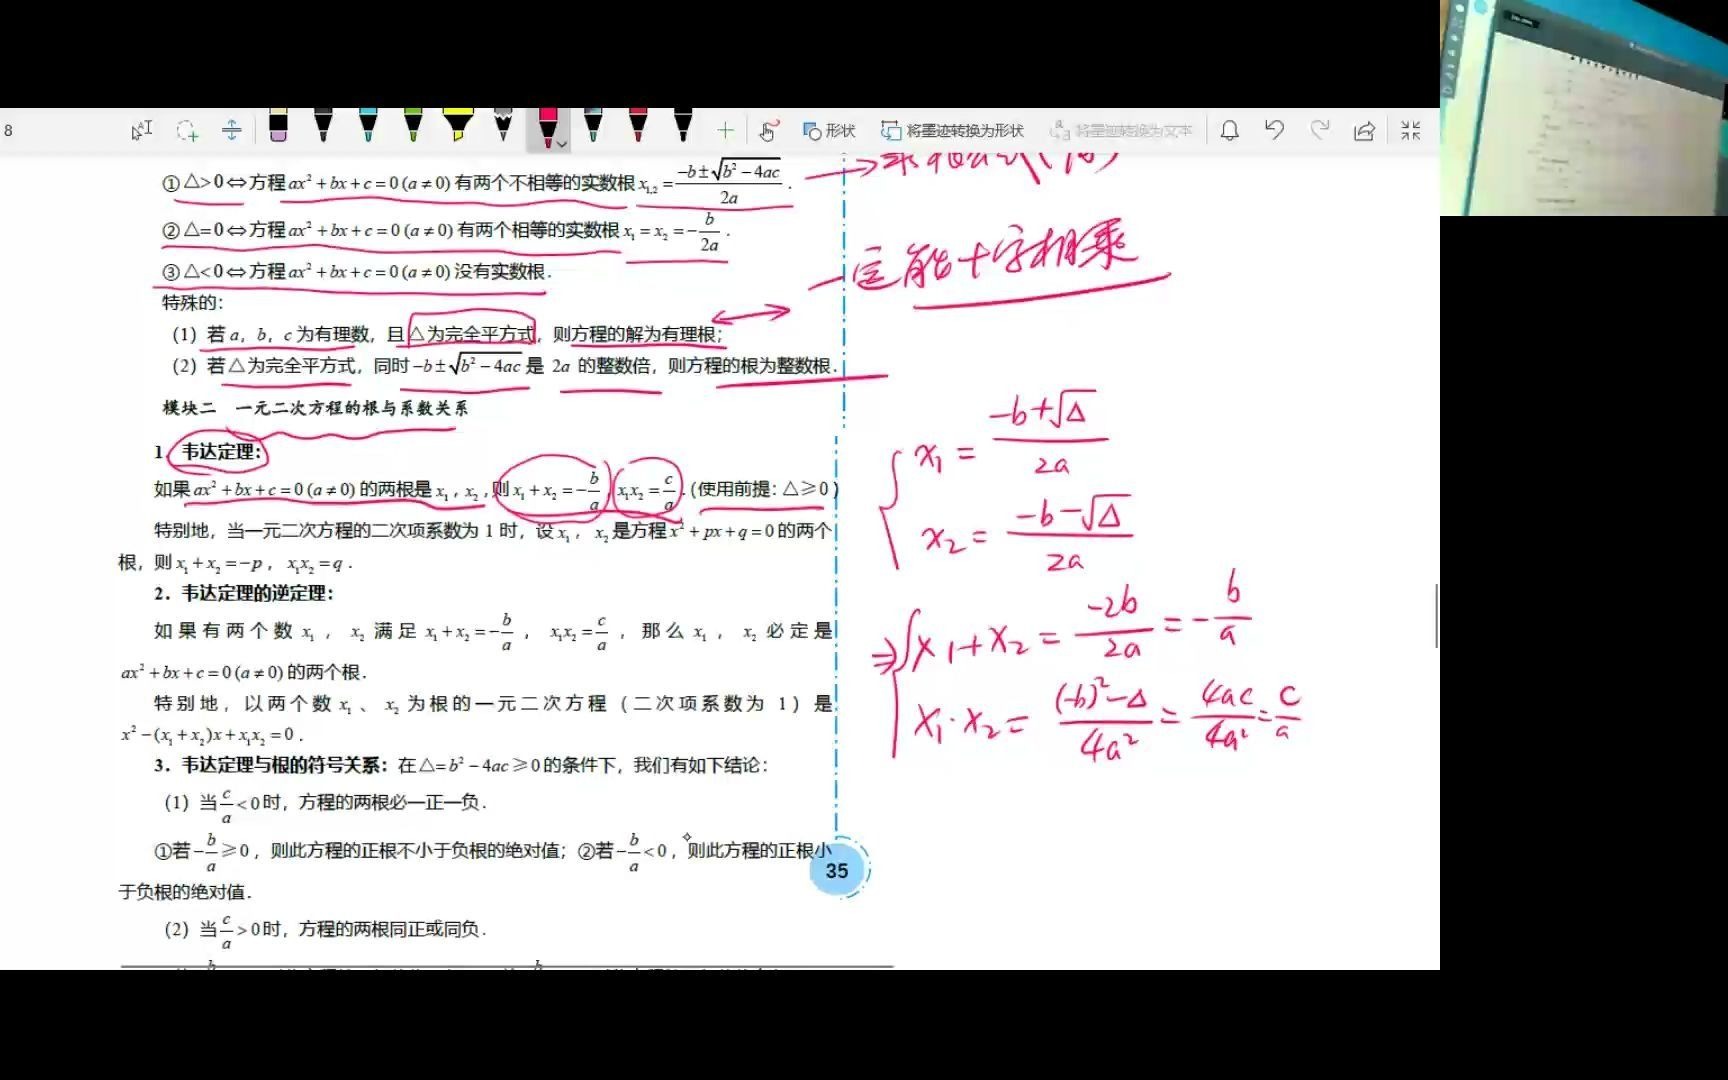 8
形状
将墨迹转换为形状
将墨迹转换为文本
①△>0⇔方程ax²+bx+c=0(a≠0)有两个不相等的实数根x₁,₂=(-b±√(b²-4ac))/(2a).
②△=0⇔方程ax²+bx+c=0(a≠0)有两个相等的实数根x₁=x₂=-b/(2a).
③△<0⇔方程ax²+bx+c=0(a≠0)没有实数根.
特殊的:
(1)若a,b,c为有理数,且△为完全平方式,则方程的解为有理根;
(2)若△为完全平方式,同时-b±√(b²-4ac)是2a的整数倍,则方程的根为整数根.
模块二 一元二次方程的根与系数关系
1.韦达定理:
如果ax²+bx+c=0(a≠0)的两根是x₁,x₂,则x₁+x₂=-b/a,x₁x₂=c/a.(使用前提:△≥0)
特别地,当一元二次方程的二次项系数为1时,设x₁,x₂是方程x²+px+q=0的两个
根,则x₁+x₂=-p,x₁x₂=q.
2.韦达定理的逆定理:
如果有两个数x₁,x₂满足x₁+x₂=-b/a,x₁x₂=c/a,那么x₁,x₂必定是
ax²+bx+c=0(a≠0)的两个根.
特别地,以两个数x₁、x₂为根的一元二次方程(二次项系数为1)是
x²-(x₁+x₂)x+x₁x₂=0.
3.韦达定理与根的符号关系:在△=b²-4ac≥0的条件下,我们有如下结论:
(1)当c/a<0时,方程的两根必一正一负.
①若-b/a≥0,则此方程的正根不小于负根的绝对值;②若-b/a<0,则此方程的正根小
于负根的绝对值.
(2)当c/a>0时,方程的两根同正或同负.
35
一定能十字相乘
x₁=(-b+√△)/(2a)
x₂=(-b-√△)/(2a)
⇒x₁+x₂=(-2b)/(2a)=-b/a
x₁·x₂=((-b)²-△)/(4a²)=4ac/4a²=c/a